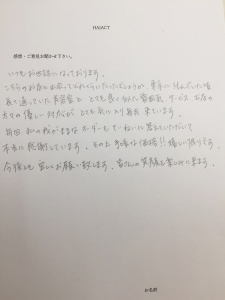 HAIACT
感想・ご意見お聞かせ下さい。
いつもお世話になっております。
こちらのお店と出会ってどれくらいたったでしょうか。東京に住んでいた頃
長く通っていた美容室と とても良くにた雰囲気、サービス お店の
方々の優しい対応が とても気に入り毎月来ています。
毎回 私のわがままなオーダーもていねいに答えていただいて
本当に感謝しています。その上 お得な価格!! 嬉しい限りです。
今後とも宜しくお願い致します。皆さんの笑顔を楽しみに来ます。
お名前